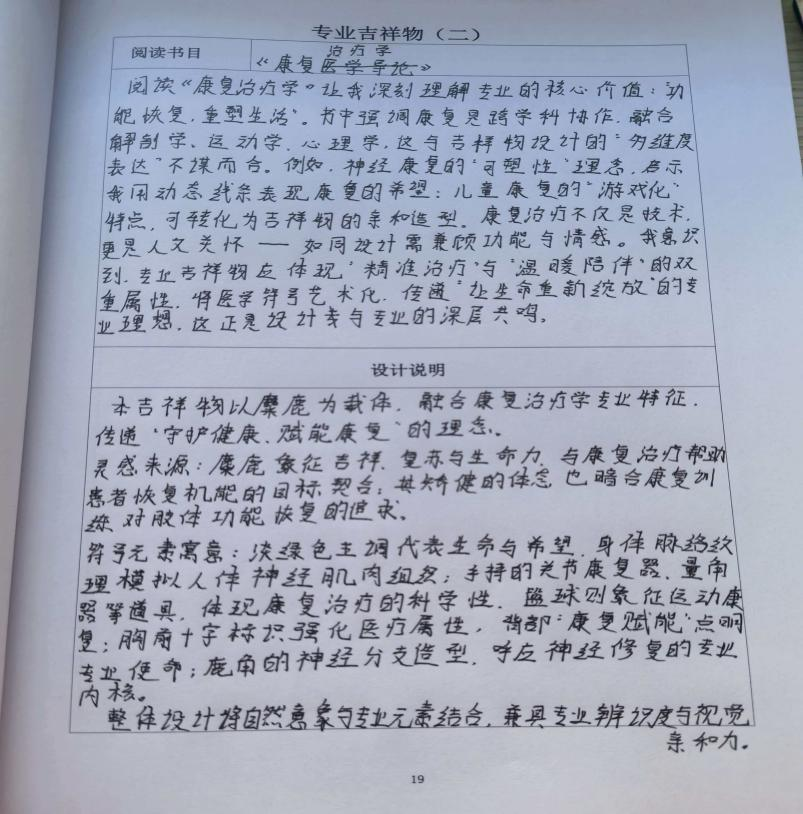 专业吉祥物（二）
阅读书目
治疗学
《康复医学导论》
阅读《康复治疗学》让我深刻理解专业的核心价值："功
能恢复，重塑生活"。书中强调康复是跨学科协作，融合
解剖学、运动学、心理学，这与吉祥物设计的"多维度
表达"不谋而合。例如，神经康复的"可塑性"理念，启示
我用动态线条表现康复的希望；儿童康复的"游戏化"
特点，可转化为吉祥物的亲和造型。康复治疗不仅是技术，
更是人文关怀——如同设计需兼顾功能与情感。我意识
到，专业吉祥物应体现"精准治疗"与"温暖陪伴"的双
重属性，将医学符号艺术化，传递"让生命重新绽放"的专
业理想，这正是设计我与专业的深层共鸣。
设计说明
本吉祥物以麋鹿为载体，融合康复治疗学专业特征，
传递"守护健康、赋能康复"的理念。
灵感来源：麋鹿象征吉祥、复苏与生命力，与康复治疗帮助
患者恢复机能的目标契合；其矫健的体态也暗合康复训
练对肢体功能恢复的追求。
符号元素寓意：淡绿色主调代表生命与希望，身体脉络纹
理模拟人体神经肌肉组织；手持的关节康复器、量角
器等道具，体现康复治疗的科学性，篮球则象征运动康
复；胸前十字标识强化医疗属性，背部"康复赋能"点明
专业使命；鹿角的神经分支造型，呼应神经修复的专业
内核。
整体设计将自然意象与专业元素结合，兼具专业辨识度与视觉
亲和力。
19